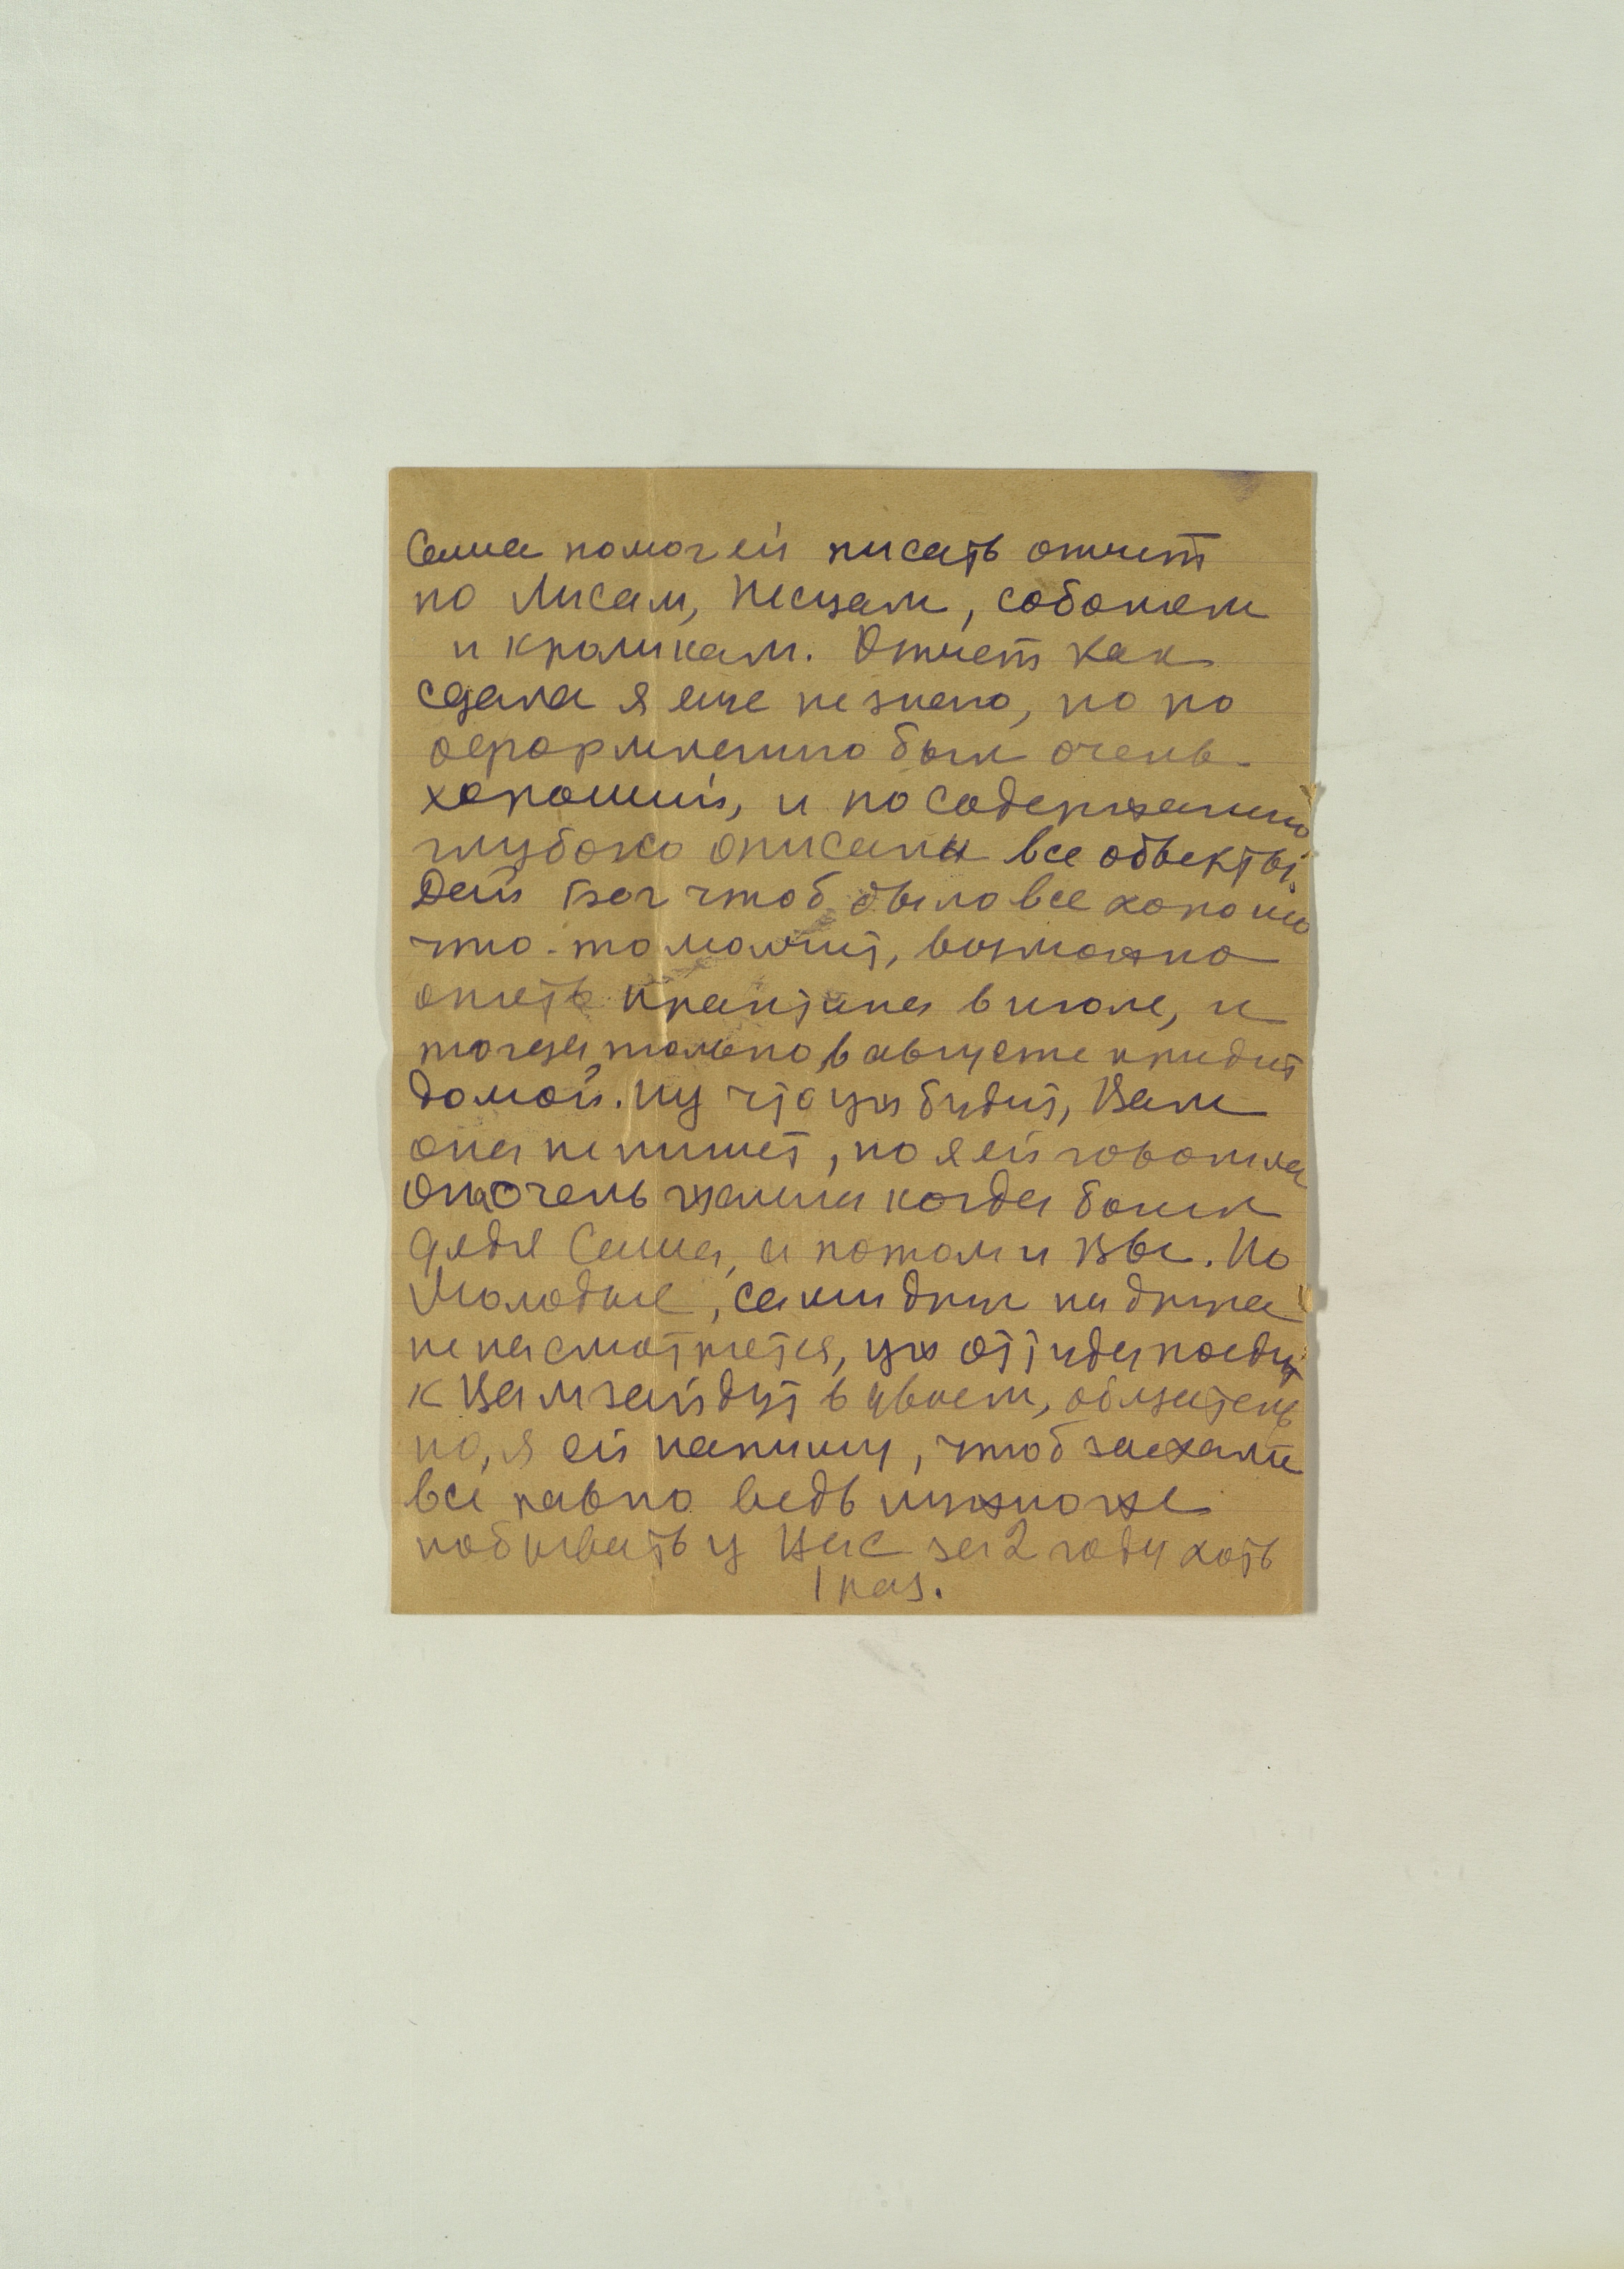 Саша помог ей писать отчет
по Лисам, Песцам, соболям
и кроликам. Отчет как
сдала я еще не знаю, но по
оформлению был очень
хороший, и по содержанию
глубоко описаны все объекты.
Дай Бог чтоб было все хорошо
что-то молчит, возможно
опять практика в июле, и
тогда, только в августе придит
домой. Ну что уж будит, Вам
она не пишет, но я ей говорила
Она очень жалила когда болел
дядя Саша, а потом и Вы. Но
Молодые, сами друг на друга
не насмотрятся, уж оттуда поедут
к Вам зайдут в Цвнем, обязатель
но, я ей напишу, чтоб заехали
все равно ведь нужно же
побывать у Вас за 2 года хоть
1 раз.